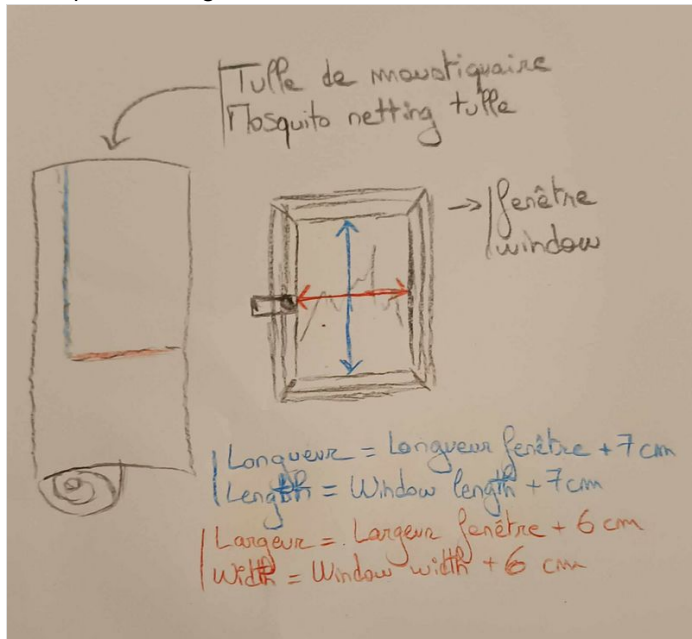 Tulle de moustiquaire
Mosquito netting tulle
fenêtre
window
Longueur = Longueur fenêtre + 7 cm
Length = Window length + 7cm
Largeur = Largeur fenêtre + 6 cm
Width = Window width + 6 cm